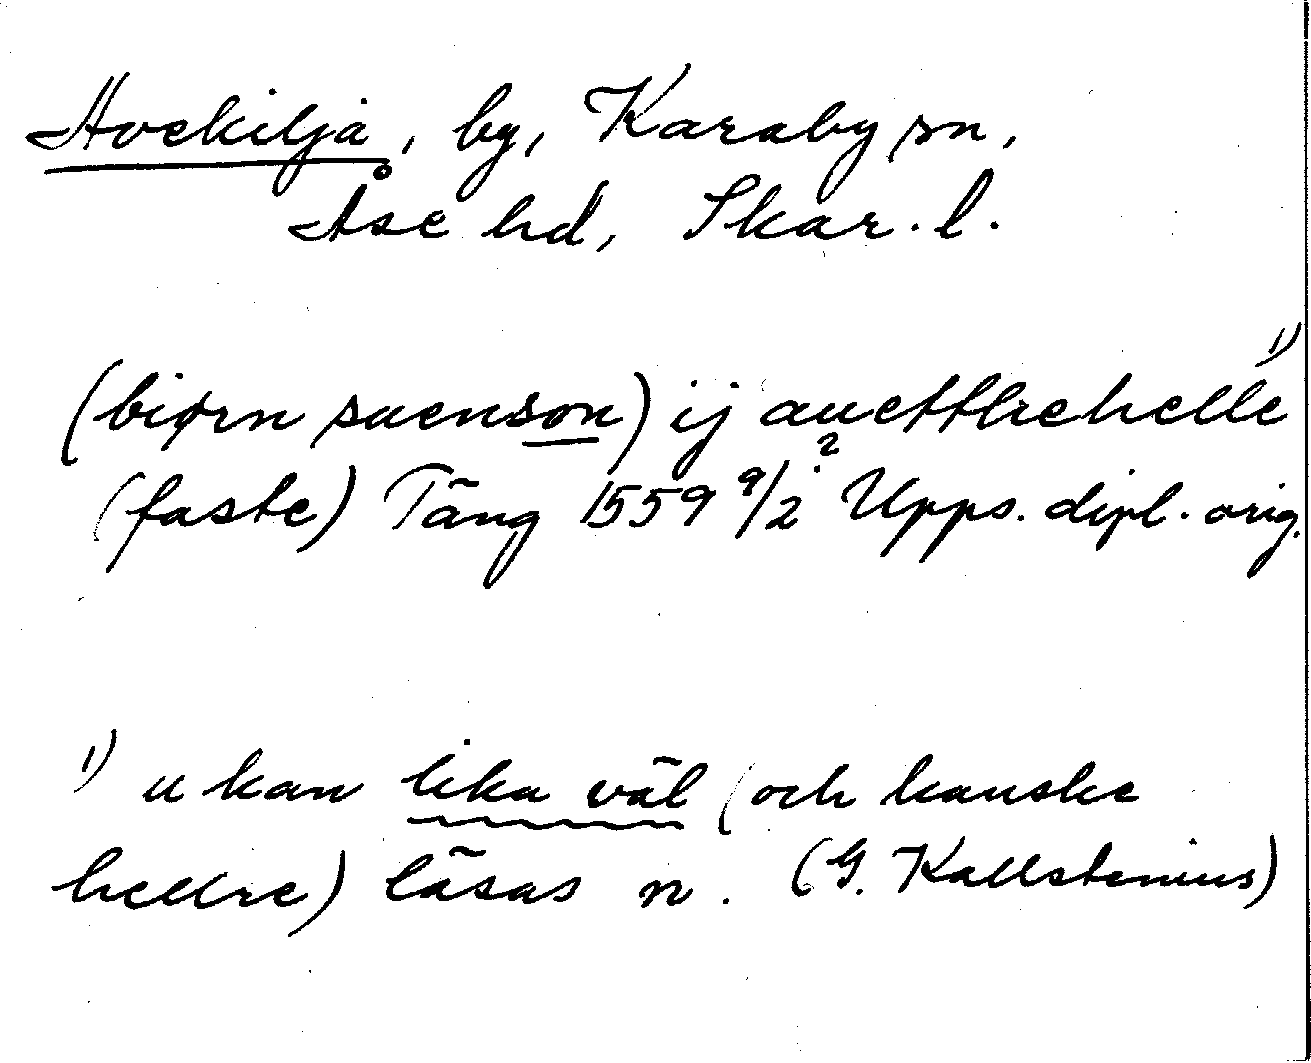 Hvekilja, by, Karaby sn,
Åse hd, Skar. l.
(biørn suenson) ij auettlehelle 1)
?
(faste) Täng 1559 9/2 Upps. dipl. orig.
1) u kan lika väl (och kanske
hellre) läsas n. (G. Kallstenius)